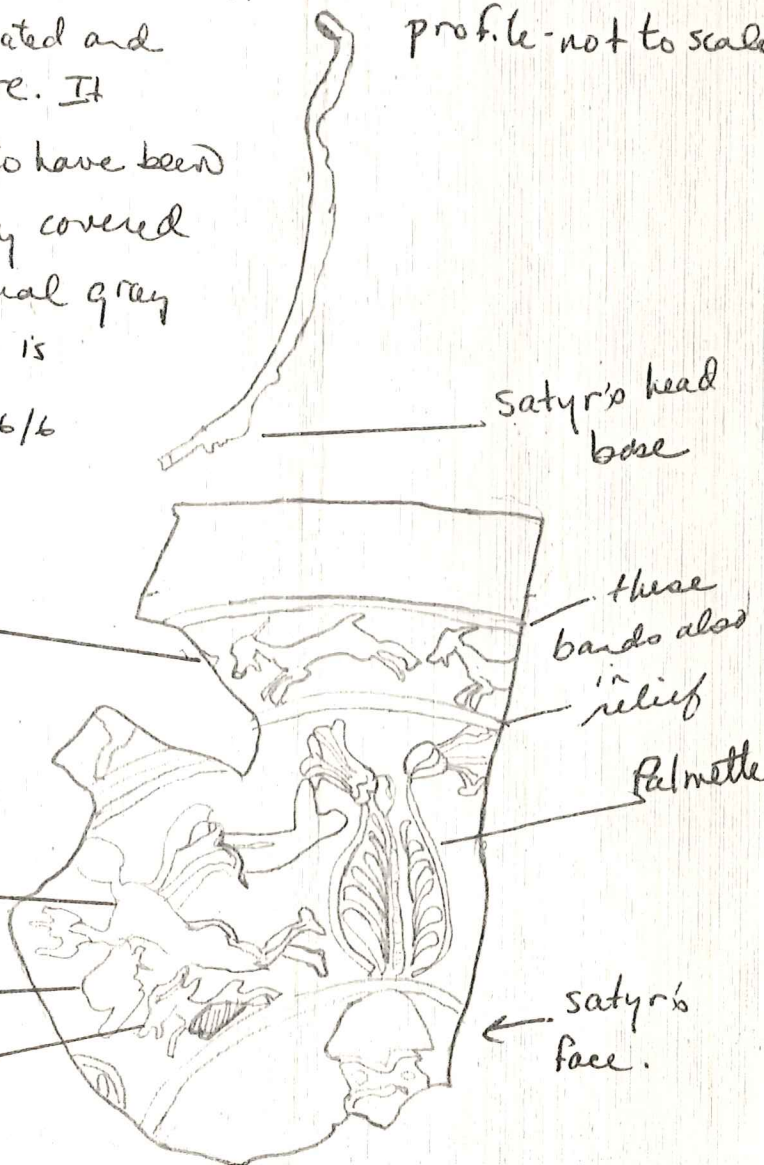 ated and
re. It
to have been
y covered
nal gray
is
6/6
profile-not to scale
satyr's head
base
these
bands also
in
relief
Palmette
satyr's
face.